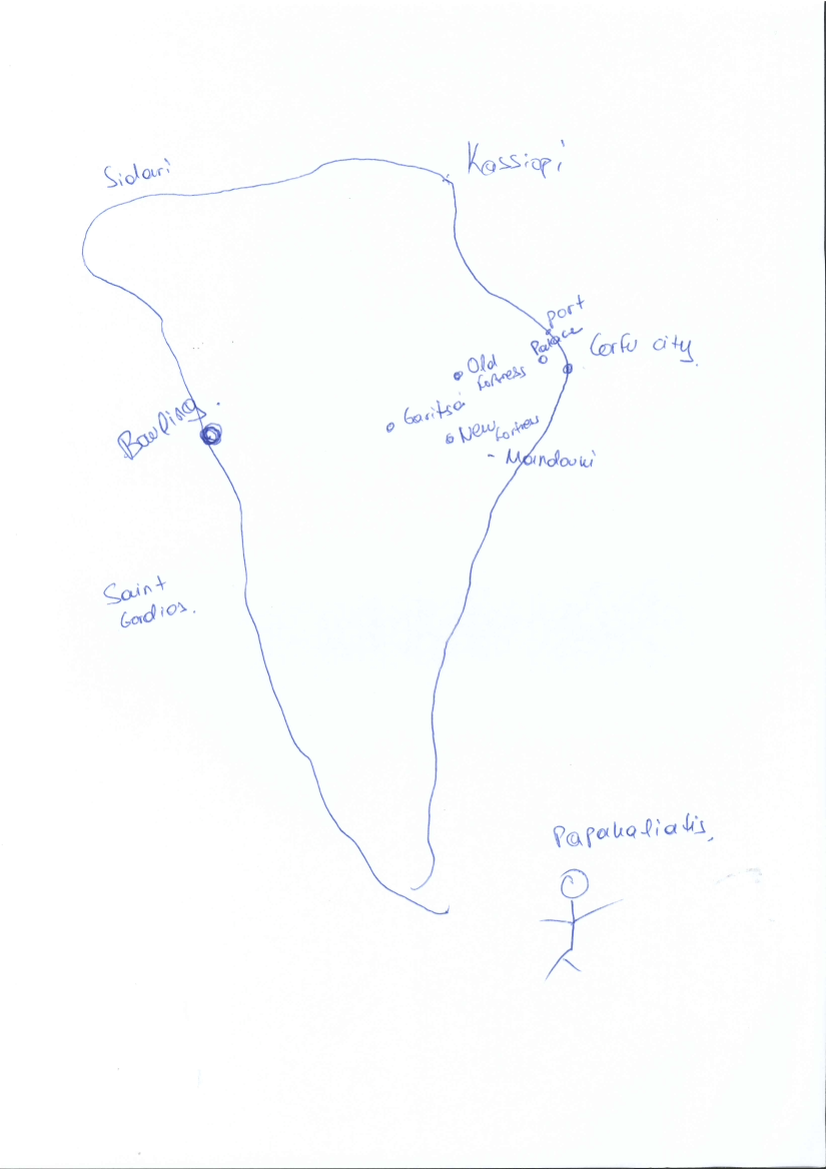 Sidari
Kassiopi
port
Palace
Corfu city
Old
fortress
Garitsa
New fortress
Mandouki
Bowling
Saint
Gordios.
Papakaliatis